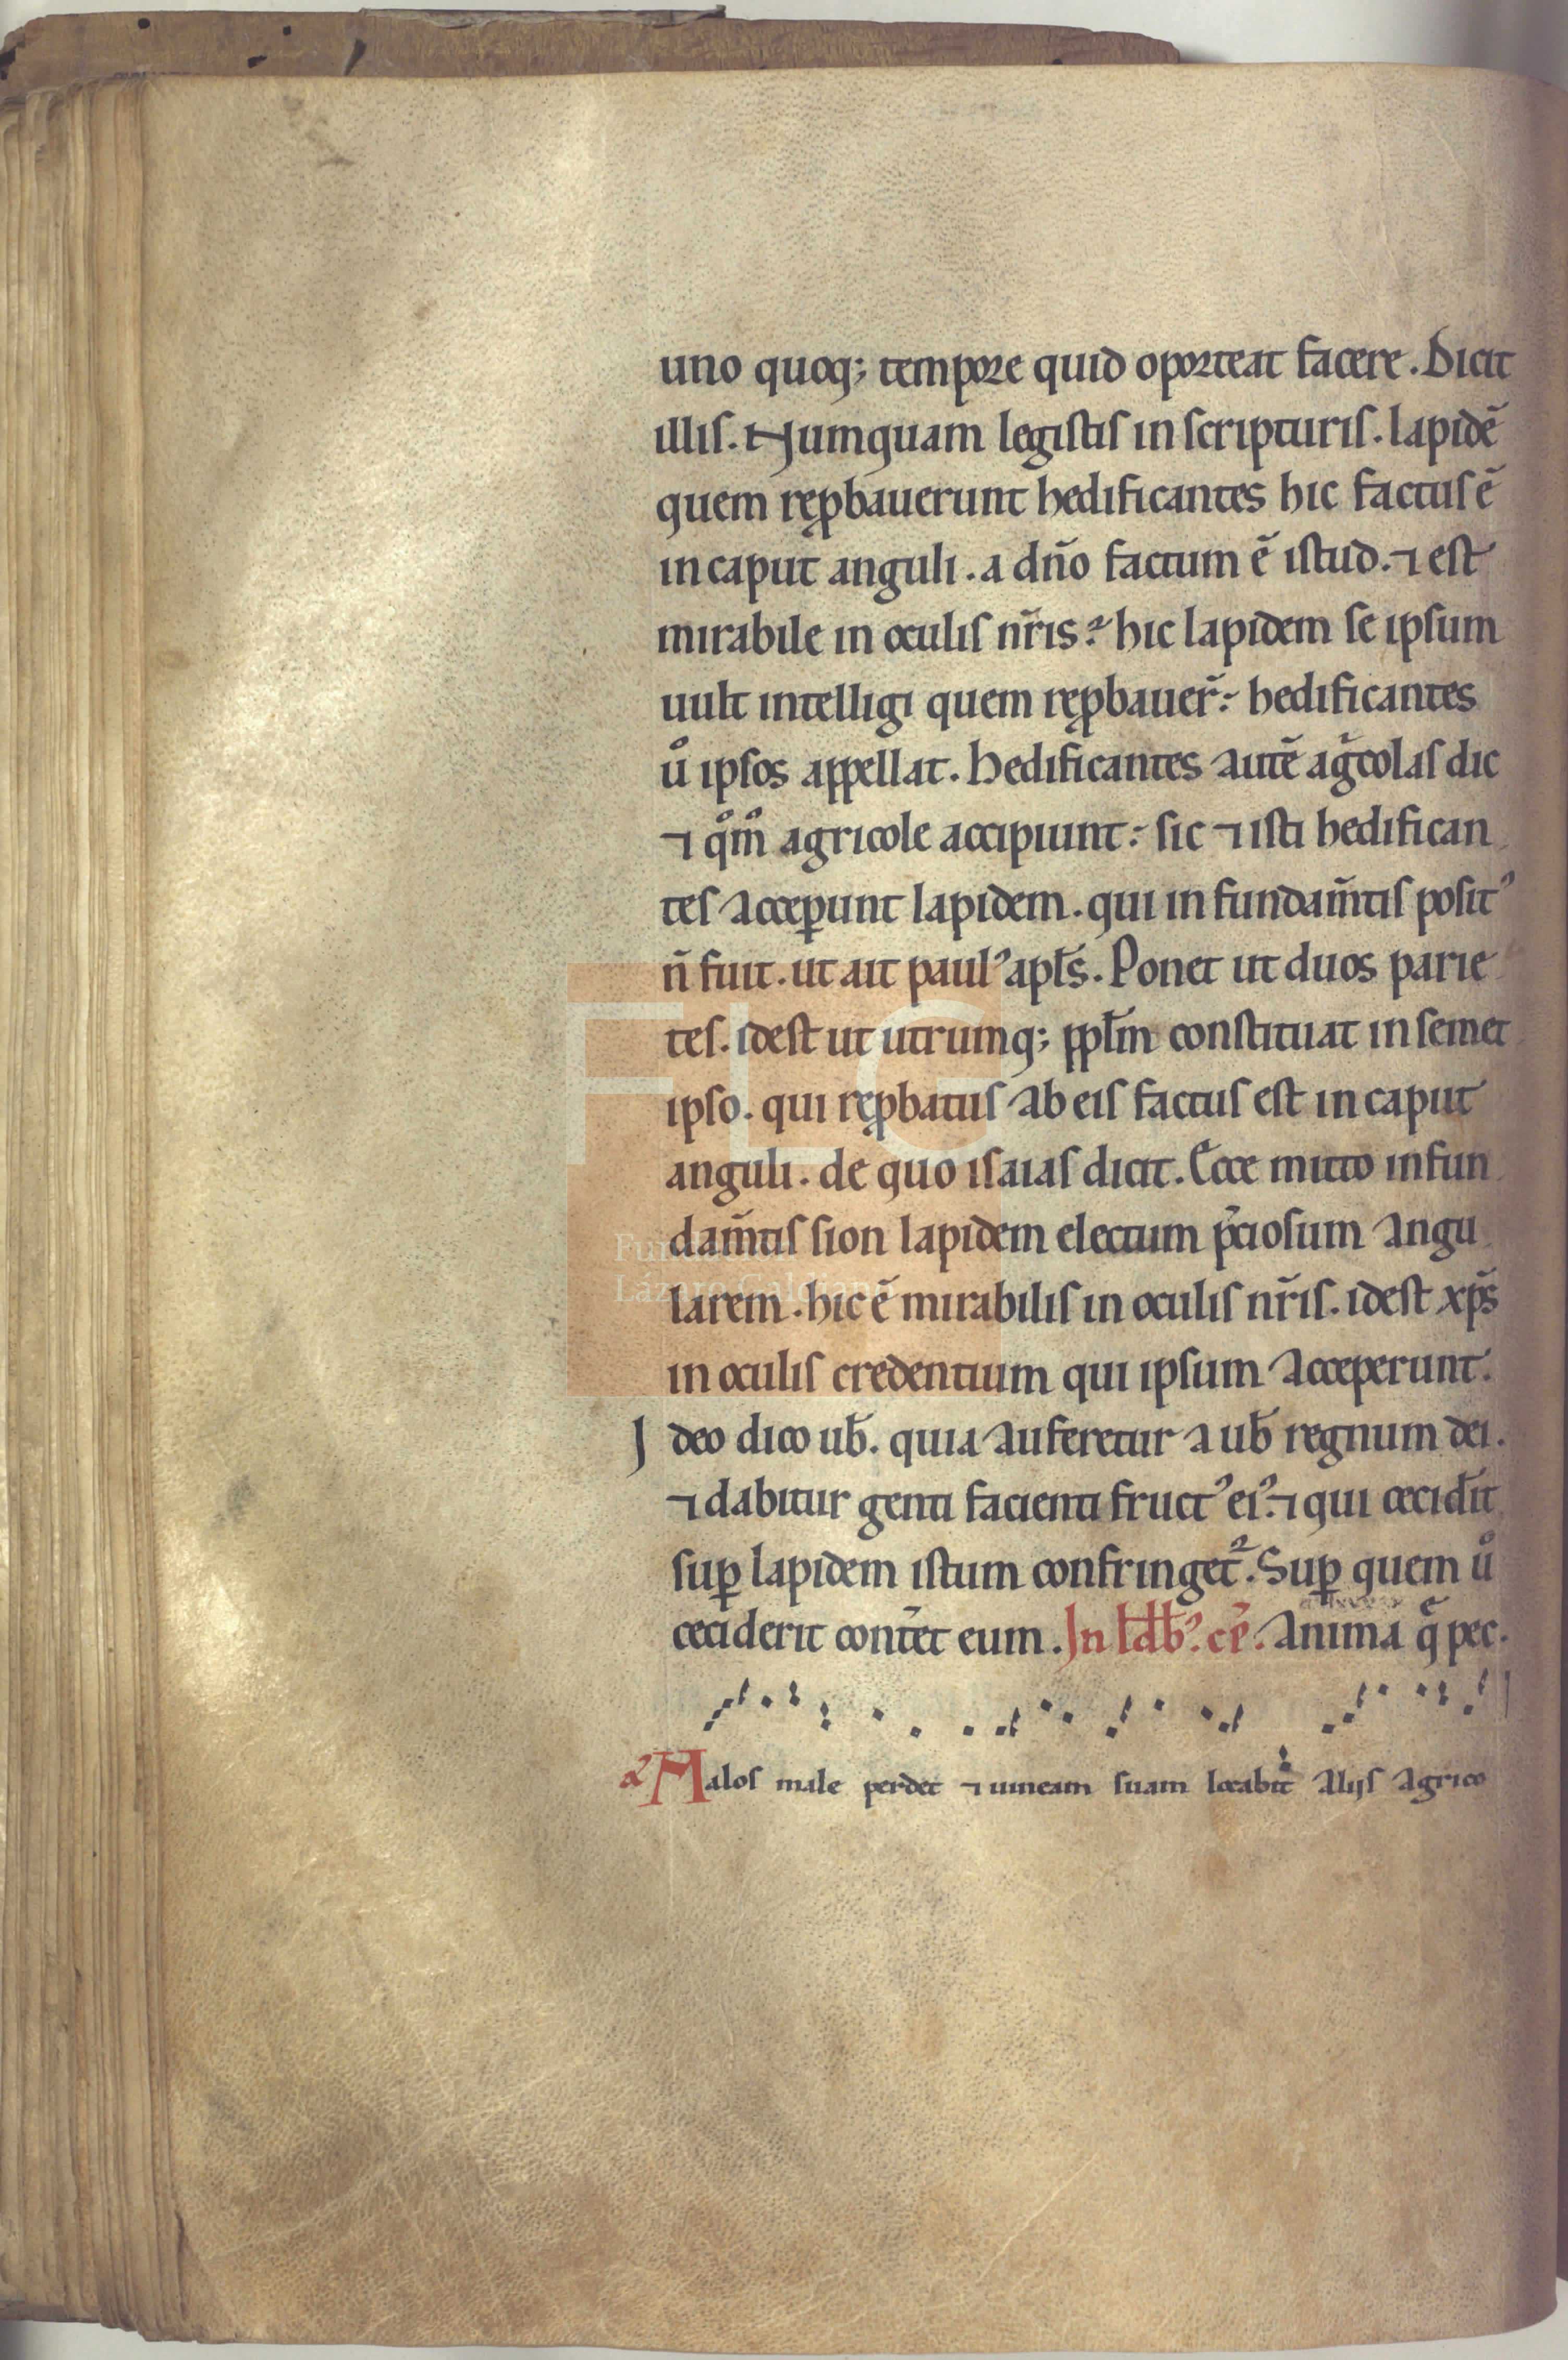 uno quoq; tempore quid oporteat facere. Dicit
illis. Numquam legistis in scripturis. lapidē
quem rep̱bauerunt hedificantes hic factus ē
in caput anguli. a dn̄o factum ē istud. ⁊ est
mirabile in oculis nr̄is? hic lapidem se ipsum
uult intelligi quem rep̱bauer̄: hedificantes
uͦ ipsos appellat. hedificantes autē ag̃colas dic
⁊ qͦmͦ agricole accipiunt: sic ⁊ isti hedifican
tes acceꝑunt lapidem. qui in fundam̄tis positꝰ
n̄ fuit. ut ait paulꝰ apl̄s. Ponet ut duos parie
tes. idest ut utrumq; ppl̄m constituat in semet
ipso. qui reꝓbatus ab eis factus est in caput
anguli. de quo isaias dicit. Ecce mitto in fun
dam̄tis sion lapidem electum p̄ciosum angu
larem. hic ē mirabilis in oculis nr̄is. idest xp̄s
in oculis credentium qui ipsum acceperunt.
Ideo dico ub̄. quia auferetur a ub̄ regnum dei.
⁊ dabitur genti facienti fructꝰ eiꝰ. ⁊ qui cecid̄it
suꝑ lapidem istum confringet᷑. Suꝑ quem uͦ
ceciderit cont̄et eum. In ld̄b; cp̄. Anima q̄ pec.
Malos male perdet ⁊ uineam suam locabit alijs agrico
FLG
Fundación
Lázaro Galdiano